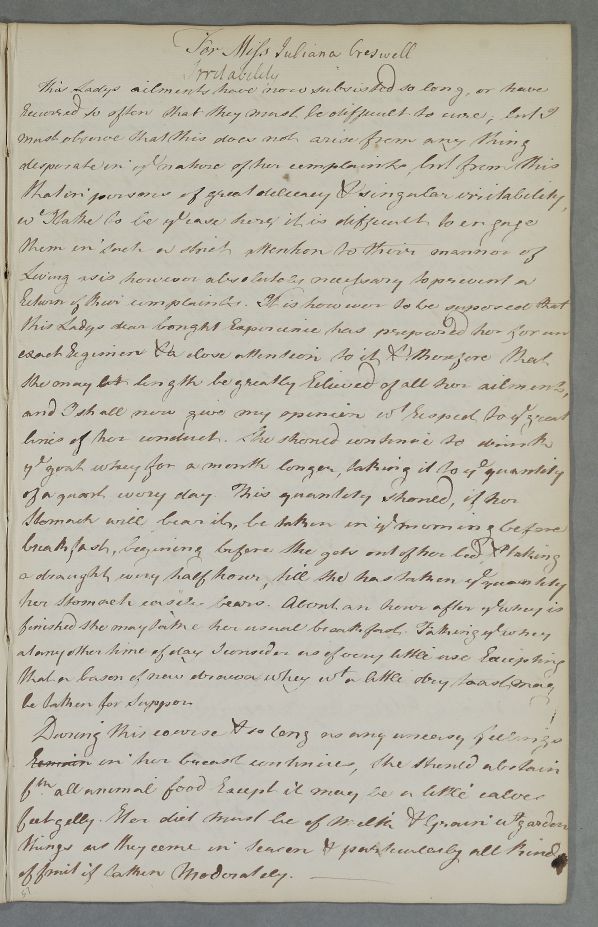 For Miss Juliana Creswell
Irritability
This Ladys ailments have now subsisted so long, or have
Recurred so often that they must be difficult to cure, but I
must observe that this does not arise from any thing
desperate in ye nature of her complaints, but from this
that in persons of great delicacy & singular irritability,
wc I take to be ye case here, it is difficult to engage
them in such a strict attention to their manner of
Living as is however absolutely necessary to prevent a
Return of their complaints. It is however to be suposed that
this Ladys dear bought Experience has prepared her for an
exact Regimen & a close attention to it & therefore that
she may at length be greatly Relieved of all her ailments,
and I shall now give my opinion wt Respect to ye great
lines of her conduct. She should continue to drink
ye goat whey for a month longer, taking it to ye quantity
of a quart every day This quantity should, if her
Stomach will bear it, be taken in ye morning before
breakfast, begining before she gets out of her bed, & taking
a draught every half hour, till she has taken ye quantity
her Stomach easily bears. About an hour after ye whey is
finished she may take her usual breakfast. Taking ye whey
at any other time of day I consider as of very little use Excepting
that a bason of new drawn whey wt a little dry toast, may
be taken for Supper
During this course & so long as any uneasy feelings
Remain in her breast continues, she should abstain
fm all animal food Except it may be a little calves
feet gelly. Her diet must be of Milk & Grain wt garden
things as they come in Season & particularly all kinds
of fruit if taken Moderately.